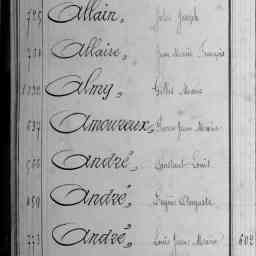 Allain, Jules Joseph
Allaire, Jean Marie François
Almy, Gilles Marie
637 Amoureux, Pierre Jean Marie
André, Constant Louis
459 André, Eugène Auguste
223 André, Louis Jean Marie 602